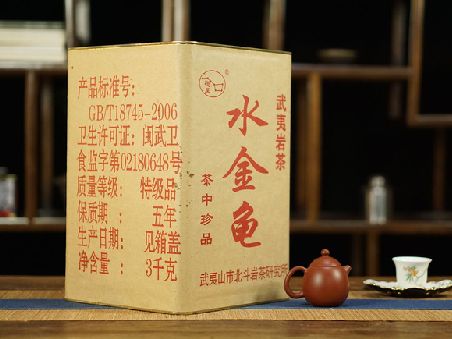 产品标准号:
GB/T18745-2006
卫生许可证: 闽武卫
食监字第02180648号
质量等级: 特级品
保质期: 五年
生产日期: 见箱盖
净含量: 3千克
武夷岩茶
水金龟
茶中珍品
武夷山市北斗岩茶研究所